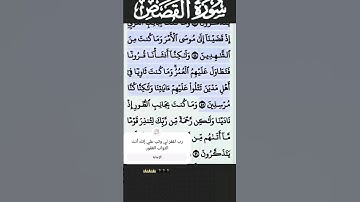 سُورَةُ القَصَصِ
إِذْ قَضَيْنَا إِلَىٰ مُوسَى ٱلْأَمْرَ وَمَا كُنتَ مِنَ
ٱلشَّٰهِدِينَ ۝ وَلَٰكِنَّا أَنشَأْنَا قُرُونًا
فَتَطَاوَلَ عَلَيْهِمُ ٱلْعُمُرُ وَمَا كُنتَ ثَاوِيًا فِىٓ
أَهْلِ مَدْيَنَ تَتْلُوا۟ عَلَيْهِمْ ءَايَٰتِنَا وَلَٰكِنَّا كُنَّا
مُرْسِلِينَ ۝ وَمَا كُنتَ بِجَانِبِ ٱلطُّورِ إِذْ
نَادَيْنَا وَلَٰكِن رَّحْمَةً مِّن رَّبِّكَ لِتُنذِرَ قَوْمًا
مَّآ أَتَىٰهُم مِّن
رب اغفر لي وتب علي إنك أنت
التواب الغفور
يَتَذَكَّرُونَ